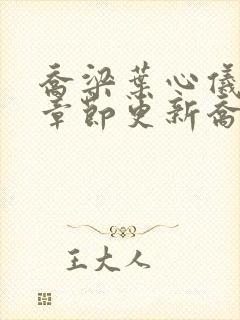 乔梁葉心儀
章節更新喬
王大人